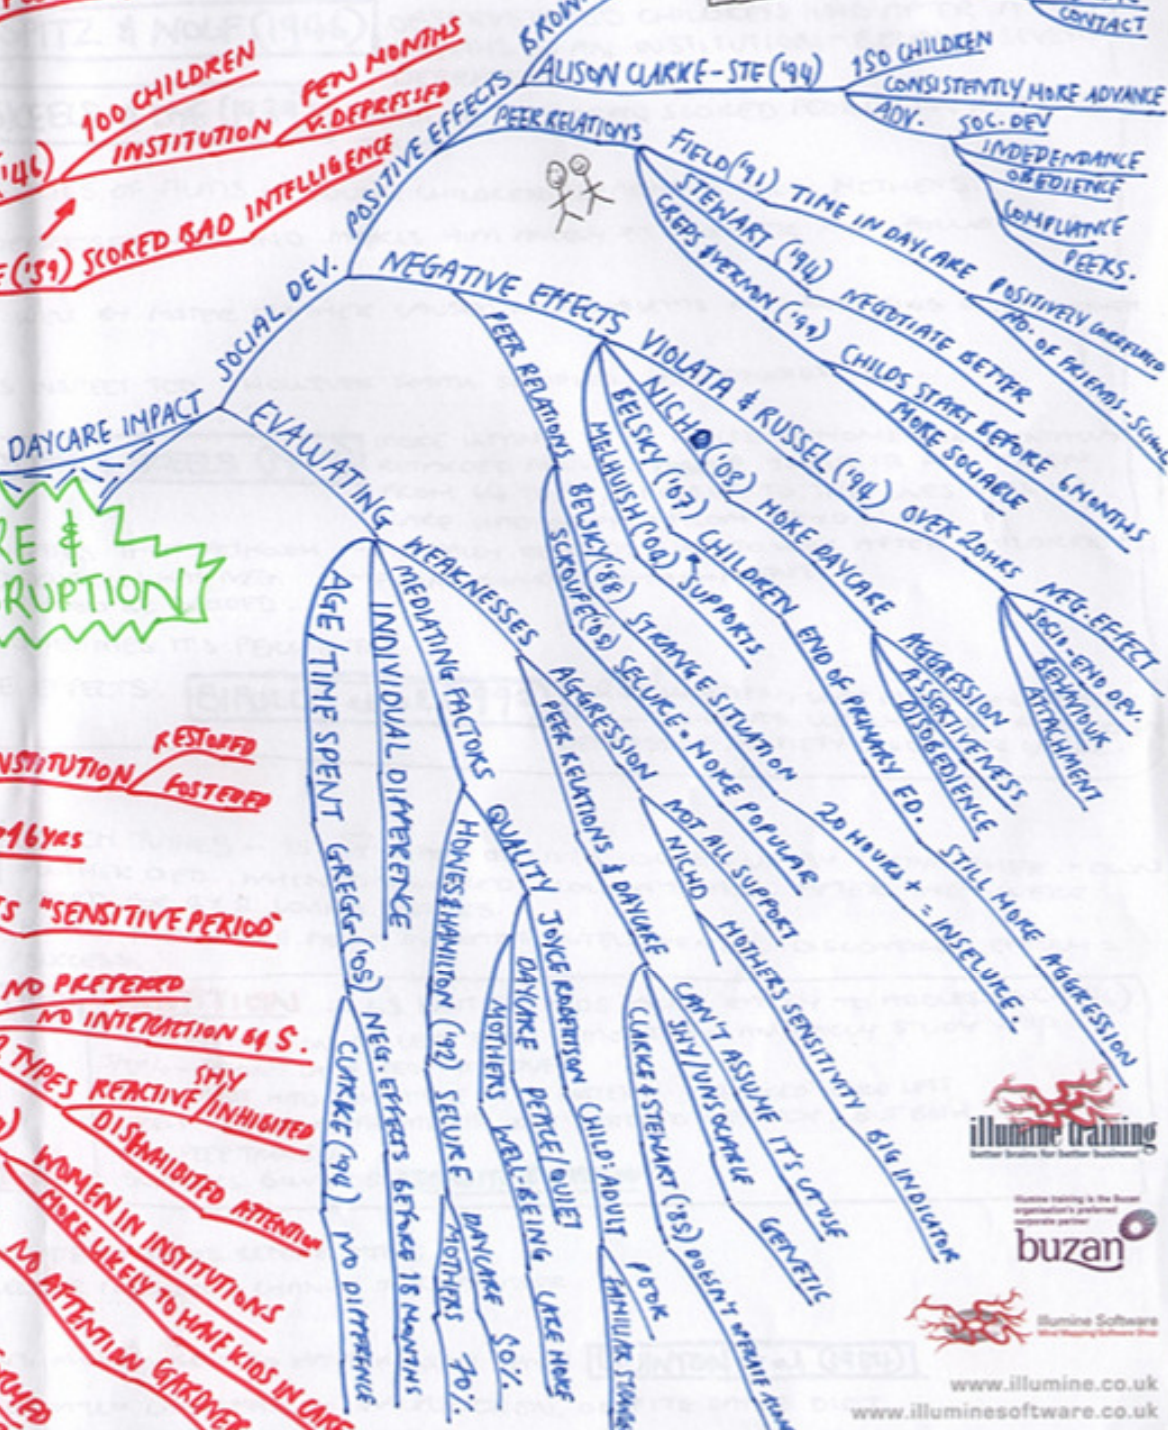 CONTACT
100 CHILDREN
INSTITUTION
FEW MONTHS
V. DEPRESSED
('46)
('59) SCORED BAD INTELLIGENCE
DAYCARE IMPACT
SOCIAL DEV.
POSITIVE EFFECTS
ALISON CLARKE-STE ('94)
150 CHILDREN
CONSISTENTLY MORE ADVANCE
ADV.
SOC. DEV
INDEPENDANCE
OBEDIENCE
COMPLIANCE
PEERS.
PEER RELATIONS
FIELD ('91) TIME IN DAYCARE
POSITIVELY CORRELATED
NO. OF FRIENDS - SCHOOL
STEWART ('94) NEGOTIATE BETTER
CREPS & VERNON ('99) CHILDS START BEFORE 6 MONTHS
MORE SOCIABLE
NEGATIVE EFFECTS
VIOLATA & RUSSEL ('94) OVER 20HRS
NEG. EFFECT
SOCIO-END DEV.
BEHAVIOUR
ATTACHMENT
('08) MORE DAYCARE
AGGRESSION
ASSERTIVENESS
DISOBEDIENCE
BELSKY ('07) CHILDREN END OF PRIMARY ED. STILL MORE AGGRESSION
MELHUISH SUPPORTS
PEER RELATIONS
BELSKY ('88) STRANGE SITUATION 20 HOURS + = INSECURE.
SECURE = MORE POPULAR
EVALUATING
WEAKNESSES
AGGRESSION
NOT ALL SUPPORT
NICHD
MOTHERS SENSITIVITY BIG INDICATOR
PEER RELATIONS & DAYCARE
CAN'T ASSUME IT'S CAUSE
SHY/UNSOCIABLE GENETIC
CLARKE & STEWART DOESN'T OPERATE
MEDIATING FACTORS
QUALITY
JOYCE ROBERTSON CHILD:ADULT
POOR
DAYCARE PEACE/QUIET
MOTHERS WELL-BEING CARE MORE
HOWES & HAMILTON ('92) SECURE
DAYCARE 50%
MOTHERS 70%
INDIVIDUAL DIFFERENCE
AGE/TIME SPENT
GREGGS ('05) NEG EFFECTS BEFORE 18 MONTHS
CLARKE ('94) NO DIFFERENCE
RE &
RUPTION
INSTITUTION
RESTORED
FOSTERED
46YRS
"SENSITIVE PERIOD"
NO PREFERRED
NO INTERACTION
TYPES
REACTIVE
SHY
INHIBITED
DISINHIBITED ATTENTION
WOMEN IN INSTITUTIONS
MORE LIKELY TO HAVE KIDS IN CARE
NO ATTENTION
illumine training
better brains for better business
illumine training is the Buzan
organisation's preferred
corporate partner
buzan
Illumine Software
Mind Mapping Software Shop
www.illumine.co.uk
www.illuminesoftware.co.uk